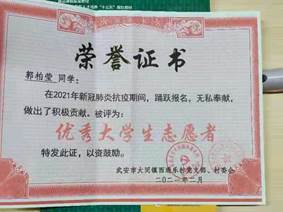 荣誉证书
郭柏莹 同学：
在2021年新冠肺炎抗疫期间，踊跃报名，无私奉献，
做出了积极贡献，被评为：
优秀大学生志愿者
特发此证，以资鼓励。
武安市大同镇西通乐村党支部、村委会
二〇二一年二月